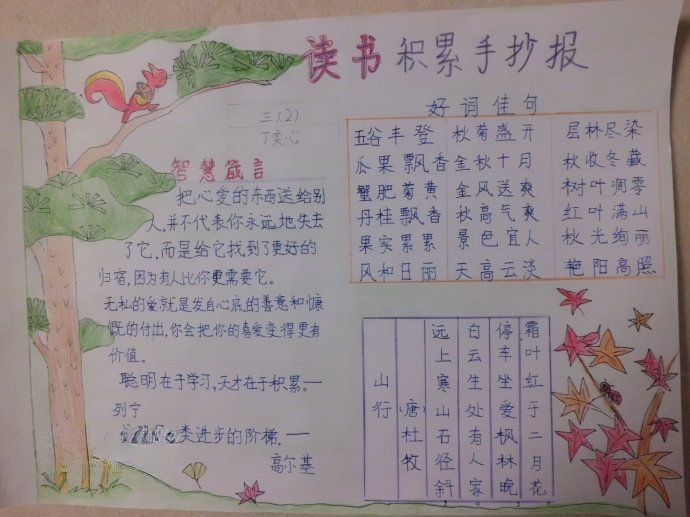 读书积累手抄报
三(2)
丁奕心
智慧箴言
把心爱的东西送给别
人,并不代表你永远地失去
了它,而是给它找到了更好的
归宿,因为有人比你更需要它。
无私的爱就是发自心底的善意和慷
慨的付出,你会把你的喜爱变得更有
价值。
聪明在于学习,天才在于积累。一
列宁
类进步的阶梯。一
高尔基
好词佳句
五谷丰登 秋菊盛开 层林尽染
瓜果飘香 金秋十月 秋收冬藏
蟹肥菊黄 金风送爽 树叶凋零
丹桂飘香 秋高气爽 红叶满山
果实累累 景色宜人 秋光绚丽
风和日丽 天高云淡 艳阳高照
山行
(唐)杜牧
远上寒山石径斜,
白云生处有人家。
停车坐爱枫林晚,
霜叶红于二月花。